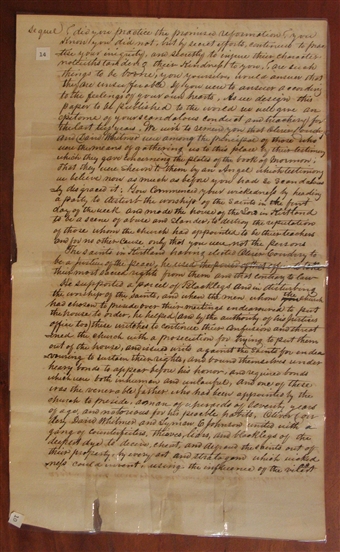 sequel? did you practice the promised reformation? you
know you did not, but by secret efforts, continued to prac-
tice your iniquity, and secretly to injure their character
notwithstanding their kindness to you, are such
things to be borne, you yourselves would answer that
they are insufferable if you were to answer according
to the feelings of your own hearts. As we design this
paper to be published to the world we will give an
epitome of your scandalous conduct and treachery for
the last two years. We wish to remind you that Oliver Cowdry
and David Whitmer were among the principal of those who
were the means of gathering us to this place by their testimony
which they gave concerning the plates of the book of Mormon,
that they were shewn to them by an Angel which testimony
we believe now as much as before you had so scandalous-
ly disgraced it. You commenced your wickedness by heading
a party to disturb the worship of the Saints in the first
day of the week. and made the house of the Lord in Kirtland
to be a scene of abuse and slander, to destroy the reputation
of those whom the church had appointed to be their teachers
and for no other cause only that you were not the persons
The Saints in Kirtland having elected Oliver Cowdery to
be a justice of the Peace, he used the power of that office to take
their most sacred rights from them and that contrary to law
He supported a parcel of Blacklegs and in disturbing
the worship of the Saints, and when the men whom the church
had chosen to preside over their meetings endeavored to put
the house to order, he helped (and by the authority of his justices
office too) these wretches to continue their confusion and threat
ened the church with a prosecution for trying to put them
out of the house, and issued writs against the Saints for endea
vouring to sustain their rights, and bound themselves under
heavy bonds to appear before his honor, and required bonds
which were both inhuman and unlawful, and one of these
was the venerable father who had been appointed by the
church to preside. a man of upwards of seventy years
of age, and notorious for his peacible habits, Oliver Cow-
dery David Whitmer and Lyman E Johnson united with a
gang of counterfeiters, thieves, liars, and blacklegs of the
deepest dye to deceive, cheat and defraud the saints out of
their property, by every art and stratagem which wicked
ness could invent, using the influence of the vilest
14